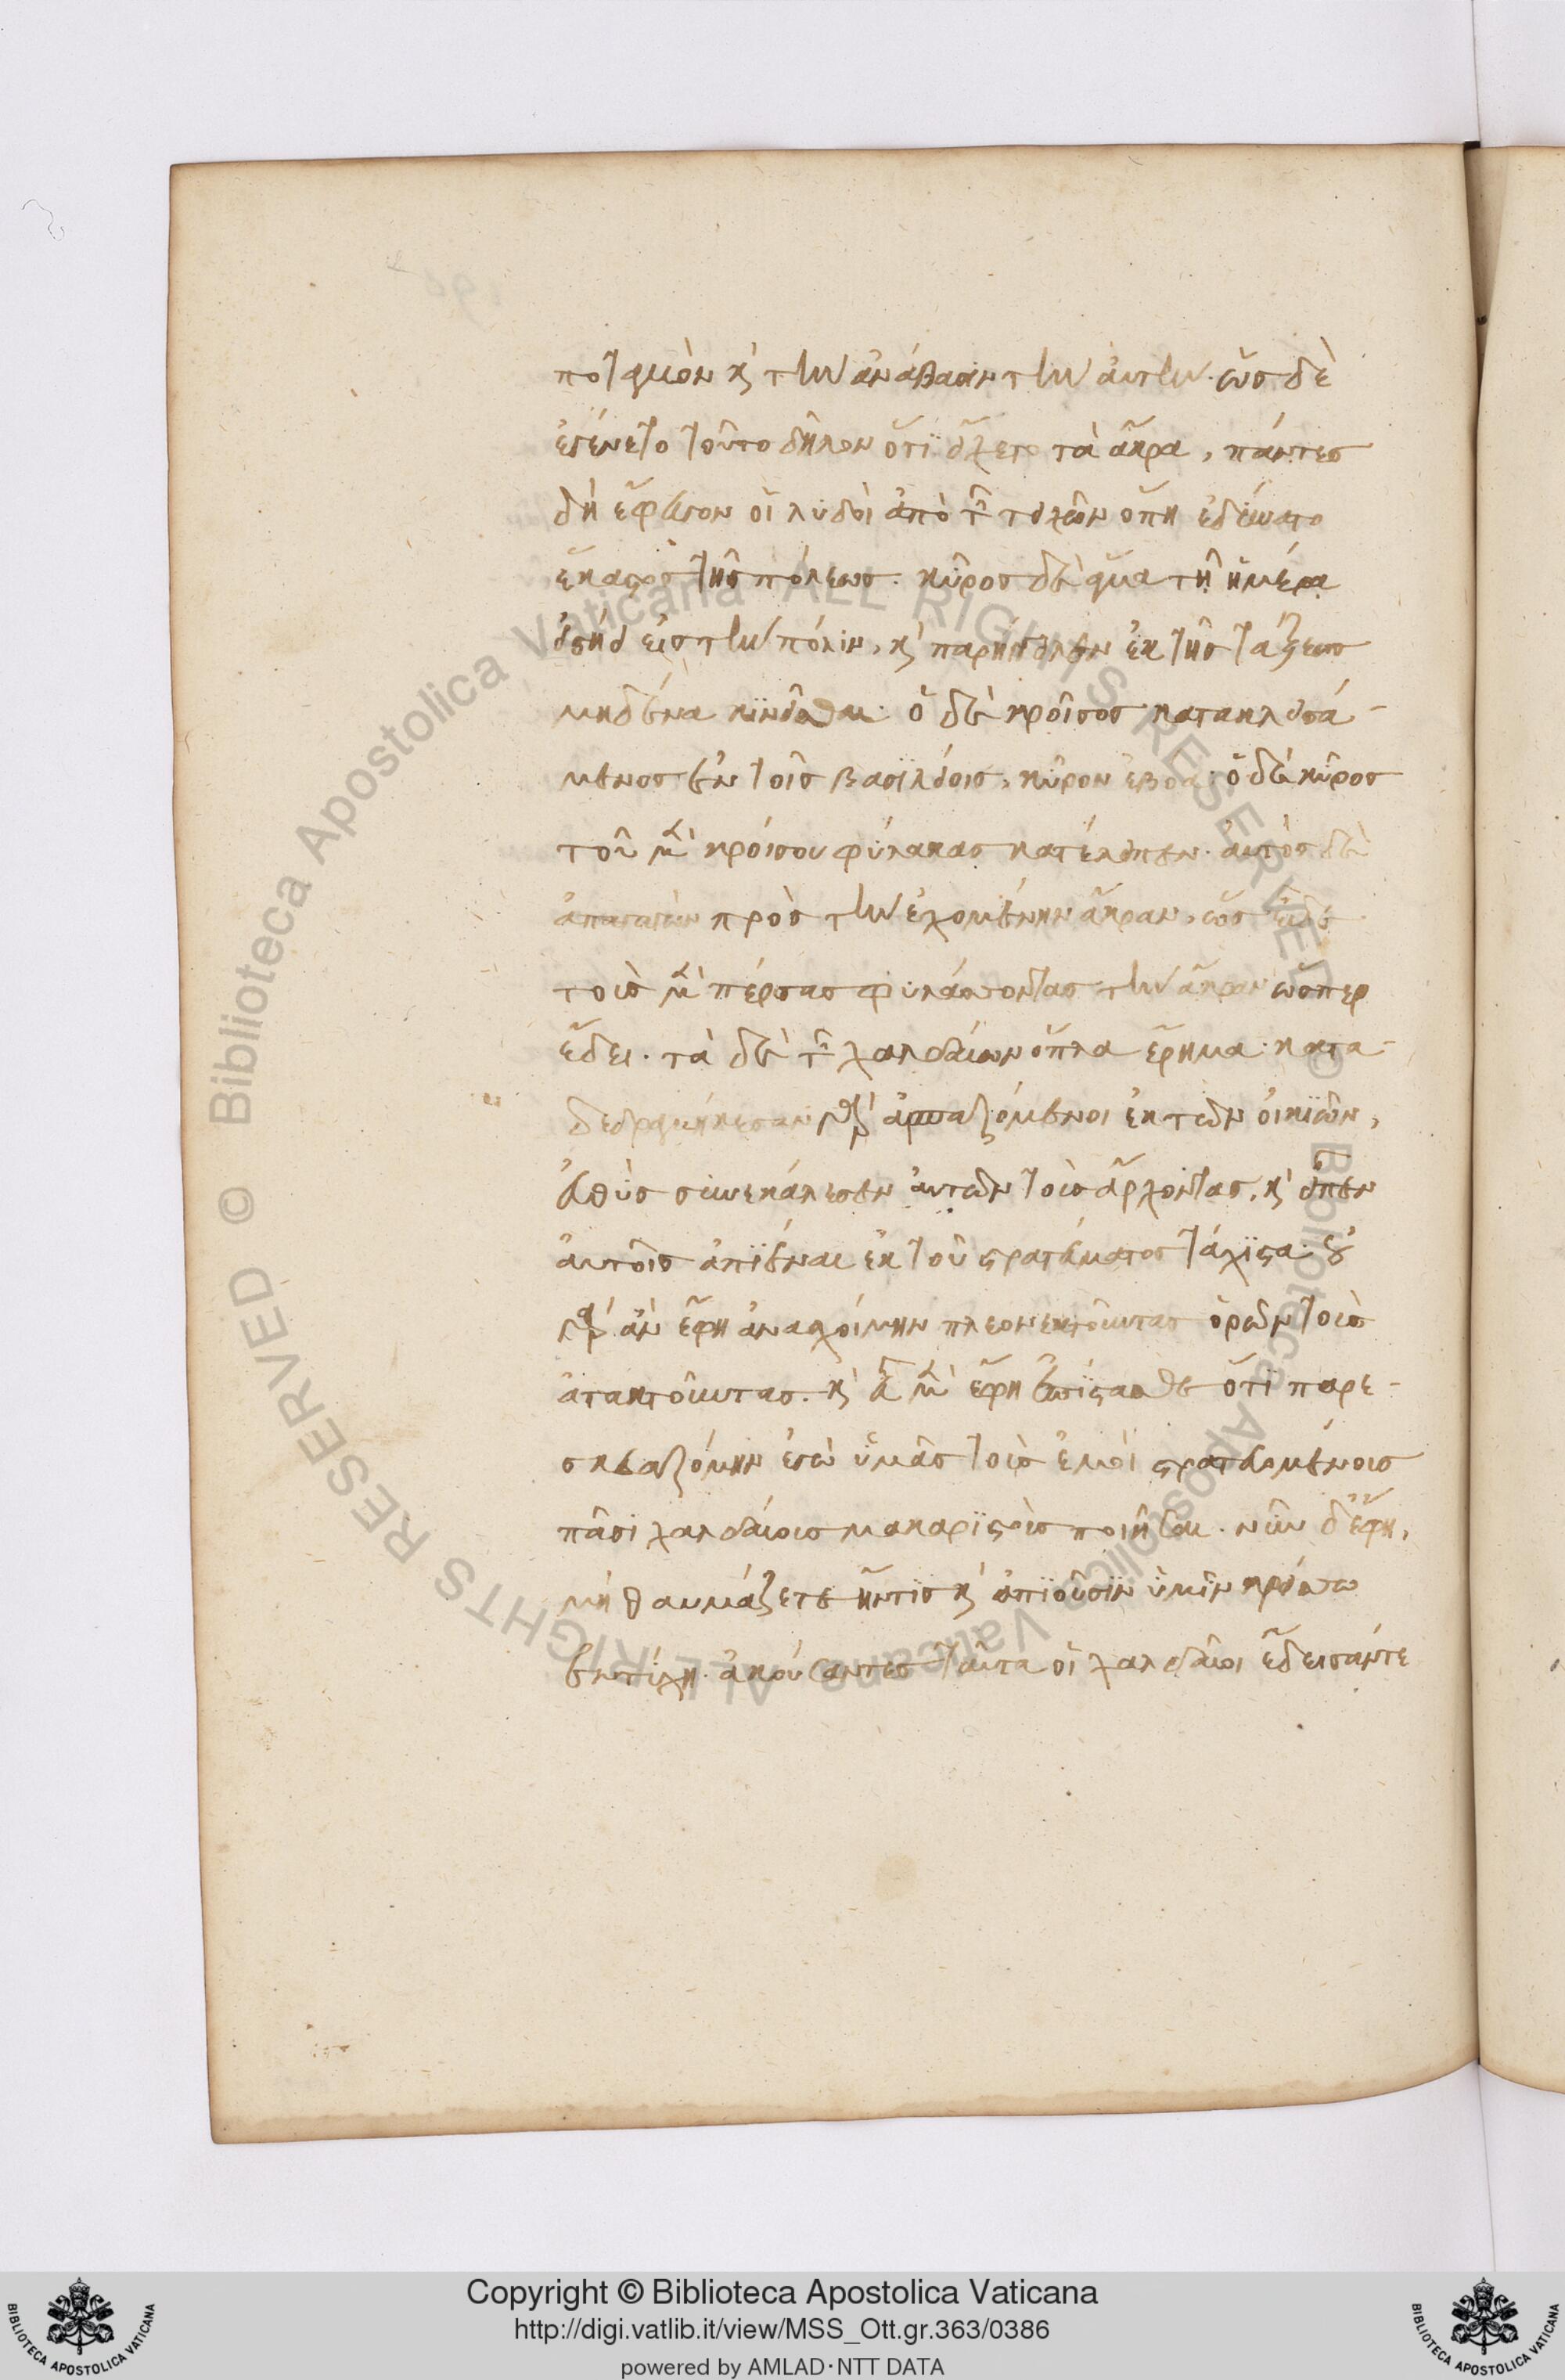 ποταμὸν κ̀ τὴν ἀνάβασιν τὴν ἀυτὴν. ὡς δὲ
ἐγένετο τοῦτο δῆλον ὅτι ἔχετο τὰ ἄκρα, πάντες
δὴ ἔφευγον οἱ λυδοὶ ἀπὸ τ̃ τειχῶν ὅπη ἐδύνατο
ἕκαστος τῆς πόλεως. κῦρος δὲ ἅμα τῆ ἡμέρα
εἰσήει εἰς τὴν πόλιν, κ̀ παρήγγειλεν ἐκ τῆς τάξεως
μηδένα κινεῖσθαι. ὁ δὲ κροῖσος κατακλεισά-
μενος ἐν τοῖς βασιλείοις, κῦρον ἐβόα· ὁ δὲ κῦρος
τοῦ μὲν κροίσου φύλακας κατέλειπεν. ἀυτὸς δὲ
ἀπαγαγὼν πρὸς τὴν ἐχομένην ἄκραν, ὡς εἶδε
τοὺς μὲν πέρσας φυλάττοντας τὴν ἄκραν ὥσπερ
ἔδει. τὰ δὲ τ̃ χαλδαίων ὅπλα ἔρημα· κατα-
δεδραμήκεσαν γὰρ ἁρπαζόμενοι ἐκ τῶν οἰκιῶν,
ἐυθὺς συνεκάλεσεν ἀυτῶν τοὺς ἄρχοντας, κ̀ εἶπεν
ἀυτοῖς ἀπιέναι ἐκ τοῦ στρατεύματος τάχιστα· οὐ
γὰρ ἂν ἔφη ἀνασχοίμην πλεονεκτοῦντας ὁρῶν τοὺς
ἀτακτοῦντας. κ̀ εὖ μὲν ἔφη ἐπίστασθε ὅτι παρε-
σκευαζόμην ἐγὼ ὑμᾶς τοὺς ἐμοὶ στρατευομένους
πᾶσι χαλδαίοις μακαριστοὺς ποιῆσαι. νῦν δ' ἔφη,
μὴ θαυμάζετε ἤντις κ̀ ἀπιοῦσιν ὑμῖν κρείττω
ἐντύχη. ἀκούσαντες ταῦτα οἱ χαλδαῖοι ἔδεισάντε
Copyright © Biblioteca Apostolica Vaticana
http://digi.vatlib.it/view/MSS_Ott.gr.363/0386
powered by AMLAD·NTT DATA